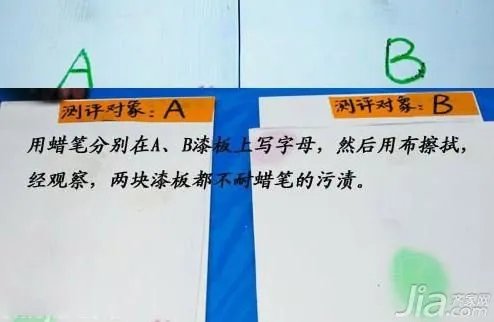 A
B
测评对象：A
测评对象：B
用蜡笔分别在A、B漆板上写字母，然后用布擦拭，
经观察，两块漆板都不耐蜡笔的污渍。
齐家网
Jia.com